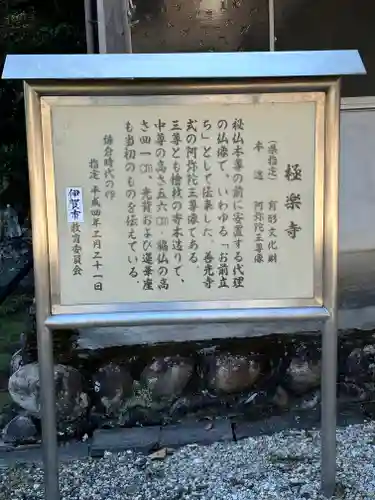 極楽寺
（県指定）　有形文化財
木造　阿弥陀三尊像
秘仏本尊の前に安置する代理
の仏像で、いわゆる「お前立
ち」として伝来した。善光寺
式の阿弥陀三尊像である。
三尊とも檜材の寄木造りで、
中尊の高さ五六㎝、脇仏の高
さ四一㎝、光背および蓮華座
も当初のものを伝えている。
鎌倉時代の作
指定　平成四年三月三十一日
伊賀市教育委員会